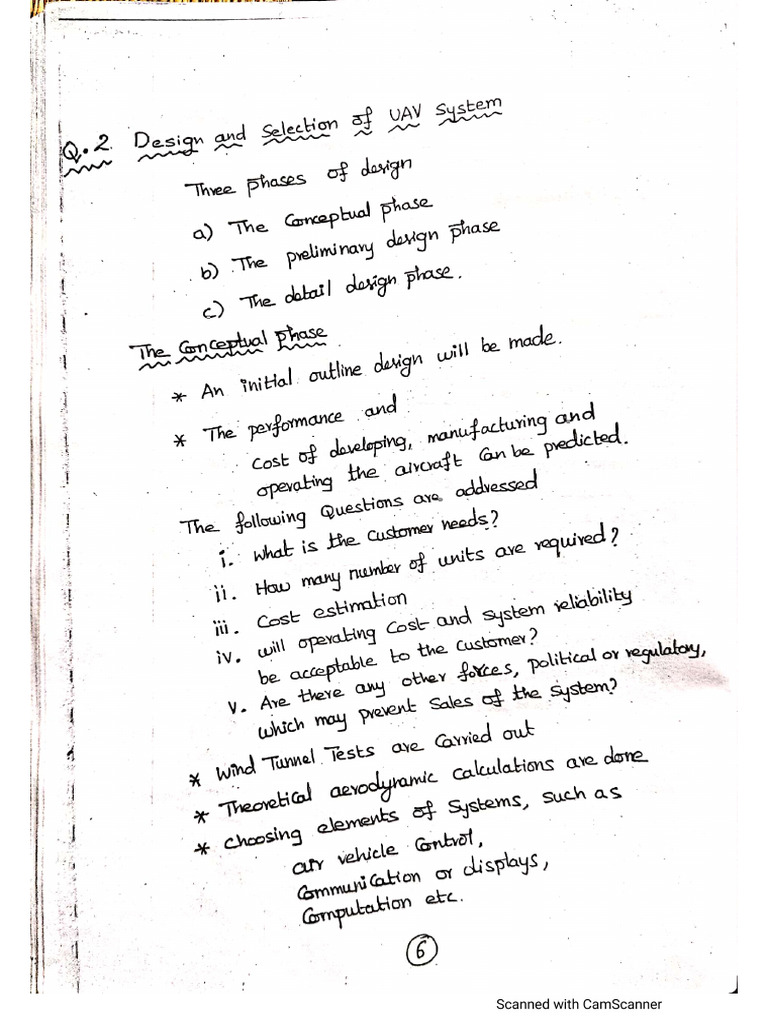 Q.2. Design and Selection of UAV System
Three phases of design
a) The Conceptual phase
b) The preliminary design phase
c) The detail design phase.
The Conceptual phase
* An initial outline design will be made.
* The performance and
Cost of developing, manufacturing and
operating the aircraft can be predicted.
The following Questions are addressed
i. What is the customer needs?
ii. How many number of units are required?
iii. Cost estimation
iv. will operating cost and system reliability
be acceptable to the customer?
v. Are there any other forces, political or regulatory,
which may prevent sales of the system?
* Wind Tunnel Tests are Carried out
* Theoretical aerodynamic calculations are done
* Choosing elements of systems, such as
air vehicle Control,
Communication or displays,
Computation etc.
6
Scanned with CamScanner